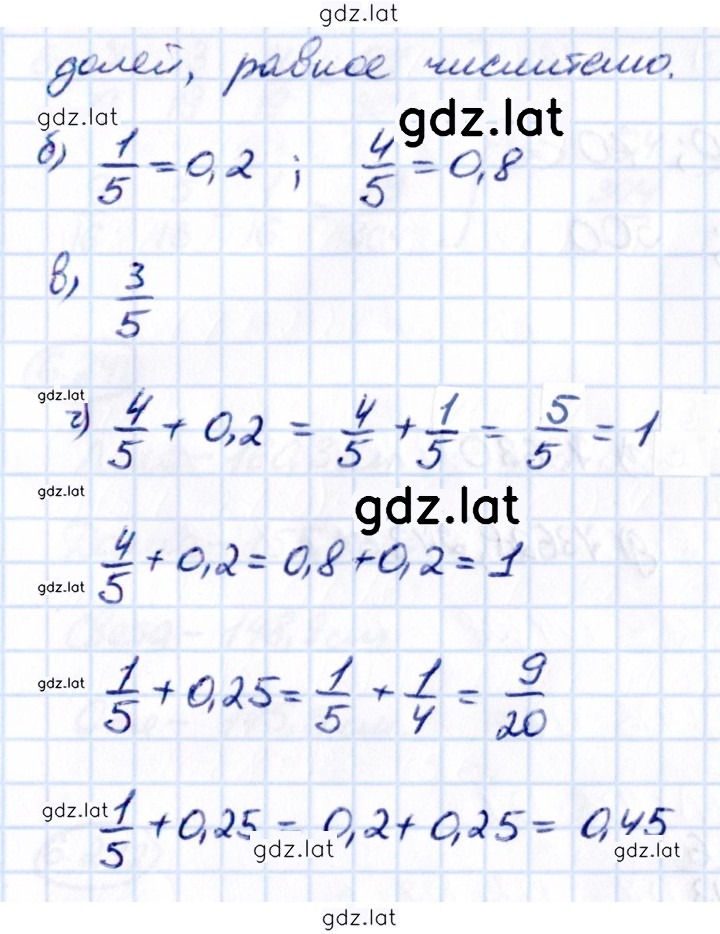 gdz.lat
долей, равное числителю.
gdz.lat
gdz.lat
б) 1/5 = 0,2 ; 4/5 = 0,8
в) 3/5
gdz.lat
г) 4/5 + 0,2 = 4/5 + 1/5 = 5/5 = 1
gdz.lat
gdz.lat
4/5 + 0,2 = 0,8 + 0,2 = 1
gdz.lat
gdz.lat
1/5 + 0,25 = 1/5 + 1/4 = 9/20
gdz.lat
1/5 + 0,25 = 0,2 + 0,25 = 0,45
gdz.lat
gdz.lat
gdz.lat